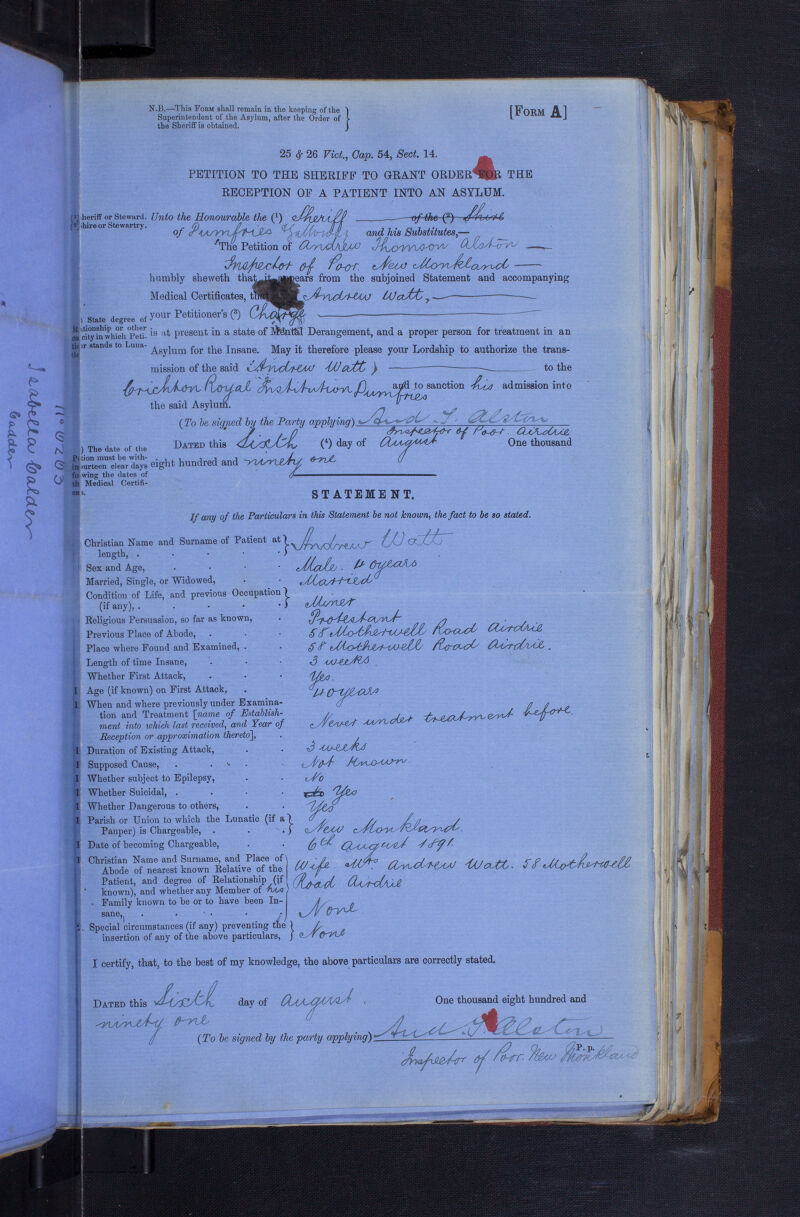 N.B.—This Form shall remain in the keeping of the
Superintendent of the Asylum, after the Order of
the Sheriff is obtained.
[Form A]
25 & 26 Vict., Cap. 54, Sect. 14.
PETITION TO THE SHERIFF TO GRANT ORDER FOR THE
RECEPTION OF A PATIENT INTO AN ASYLUM.
heriff or Steward.
hire or Stewartry.
Unto the Honourable the (¹) Sheriff of the (²) Shire
of Dumfries & Galloway and his Substitutes,—
The Petition of Andrew Thomson Alston
Inspector of Poor. New Monkland
humbly sheweth that it appears from the subjoined Statement and accompanying
Medical Certificates, that Andrew Watt,
State degree of
ationship or other
city in which Peti-
r stands to Luna-
your Petitioner's (³) Charge
is at present in a state of Mental Derangement, and a proper person for treatment in an
Asylum for the Insane. May it therefore please your Lordship to authorize the trans-
mission of the said Andrew Watt to the
Crichton Royal Institution Dumfries and to sanction his admission into
the said Asylum.
(To be signed by the Party applying) And. T. Alston
Inspector of Poor Airdrie
) The date of the
ion must be with-
urteen clear days
wing the dates of
Medical Certifi-
s.
Dated this Sixth (⁴) day of August One thousand
eight hundred and ninety one
STATEMENT.
If any of the Particulars in this Statement be not known, the fact to be so stated.
Christian Name and Surname of Patient at
length, . Andrew Watt
Sex and Age, Male. 40 years
Married, Single, or Widowed, Married
Condition of Life, and previous Occupation
(if any), . Miner
Religious Persuasion, so far as known, Protestant
Previous Place of Abode, . 58 Motherwell Road Airdrie
Place where Found and Examined, . 58 Motherwell Road Airdrie.
Length of time Insane, 3 weeks
Whether First Attack, Yes.
Age (if known) on First Attack, 40 years
When and where previously under Examina-
tion and Treatment [name of Establish-
ment into which last received, and Year of
Reception or approximation thereto], Never under treatment before
Duration of Existing Attack, 3 weeks
Supposed Cause, Not known
Whether subject to Epilepsy, No
Whether Suicidal, . No Yes
Whether Dangerous to others, Yes
Parish or Union to which the Lunatic (if a
Pauper) is Chargeable, . New Monkland.
Date of becoming Chargeable, 6th August 1891
Christian Name and Surname, and Place of
Abode of nearest known Relative of the
Patient, and degree of Relationship (if
known), and whether any Member of his
Family known to be or to have been In-
sane, .
Wife Mrs Andrew Watt. 58 Motherwell
Road Airdrie
None
Special circumstances (if any) preventing the
insertion of any of the above particulars, None
I certify, that, to the best of my knowledge, the above particulars are correctly stated.
Dated this Sixth day of August. One thousand eight hundred and
ninety one
(To be signed by the party applying) And. T. Alston
P.p.
Inspector of Poor New Monkland
No 6203
Isabella Calder
Calder